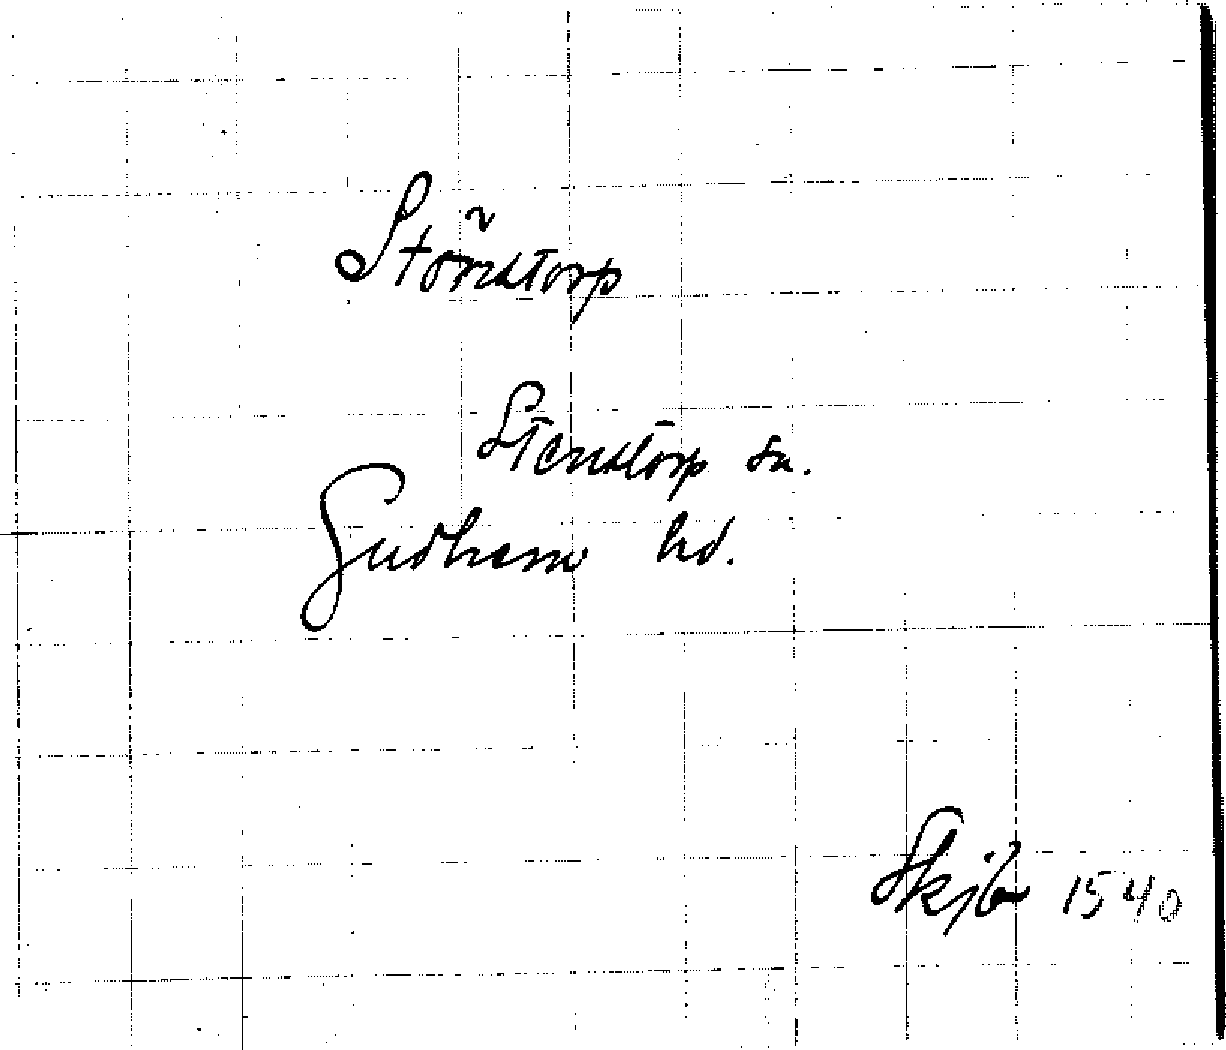 Störstorp
Stenstorp sn.
Gudhem hd.
Skjb 1540